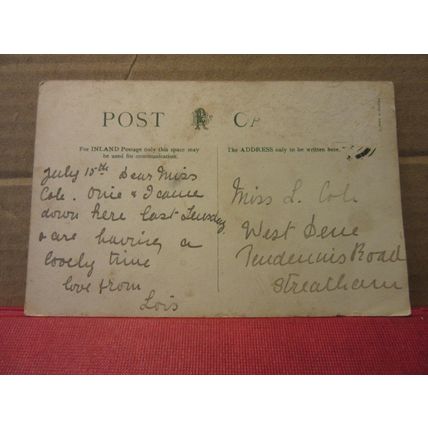 POST CA
For INLAND Postage only this space may
be used for communication.
The ADDRESS only to be written here.
July 15th Dear Miss
Cole. Ovie & I came
down here last Tuesday
& are having a
lovely time
love from
Lois
Miss L. Cole
West Dene
Pendennis Road
Streatham